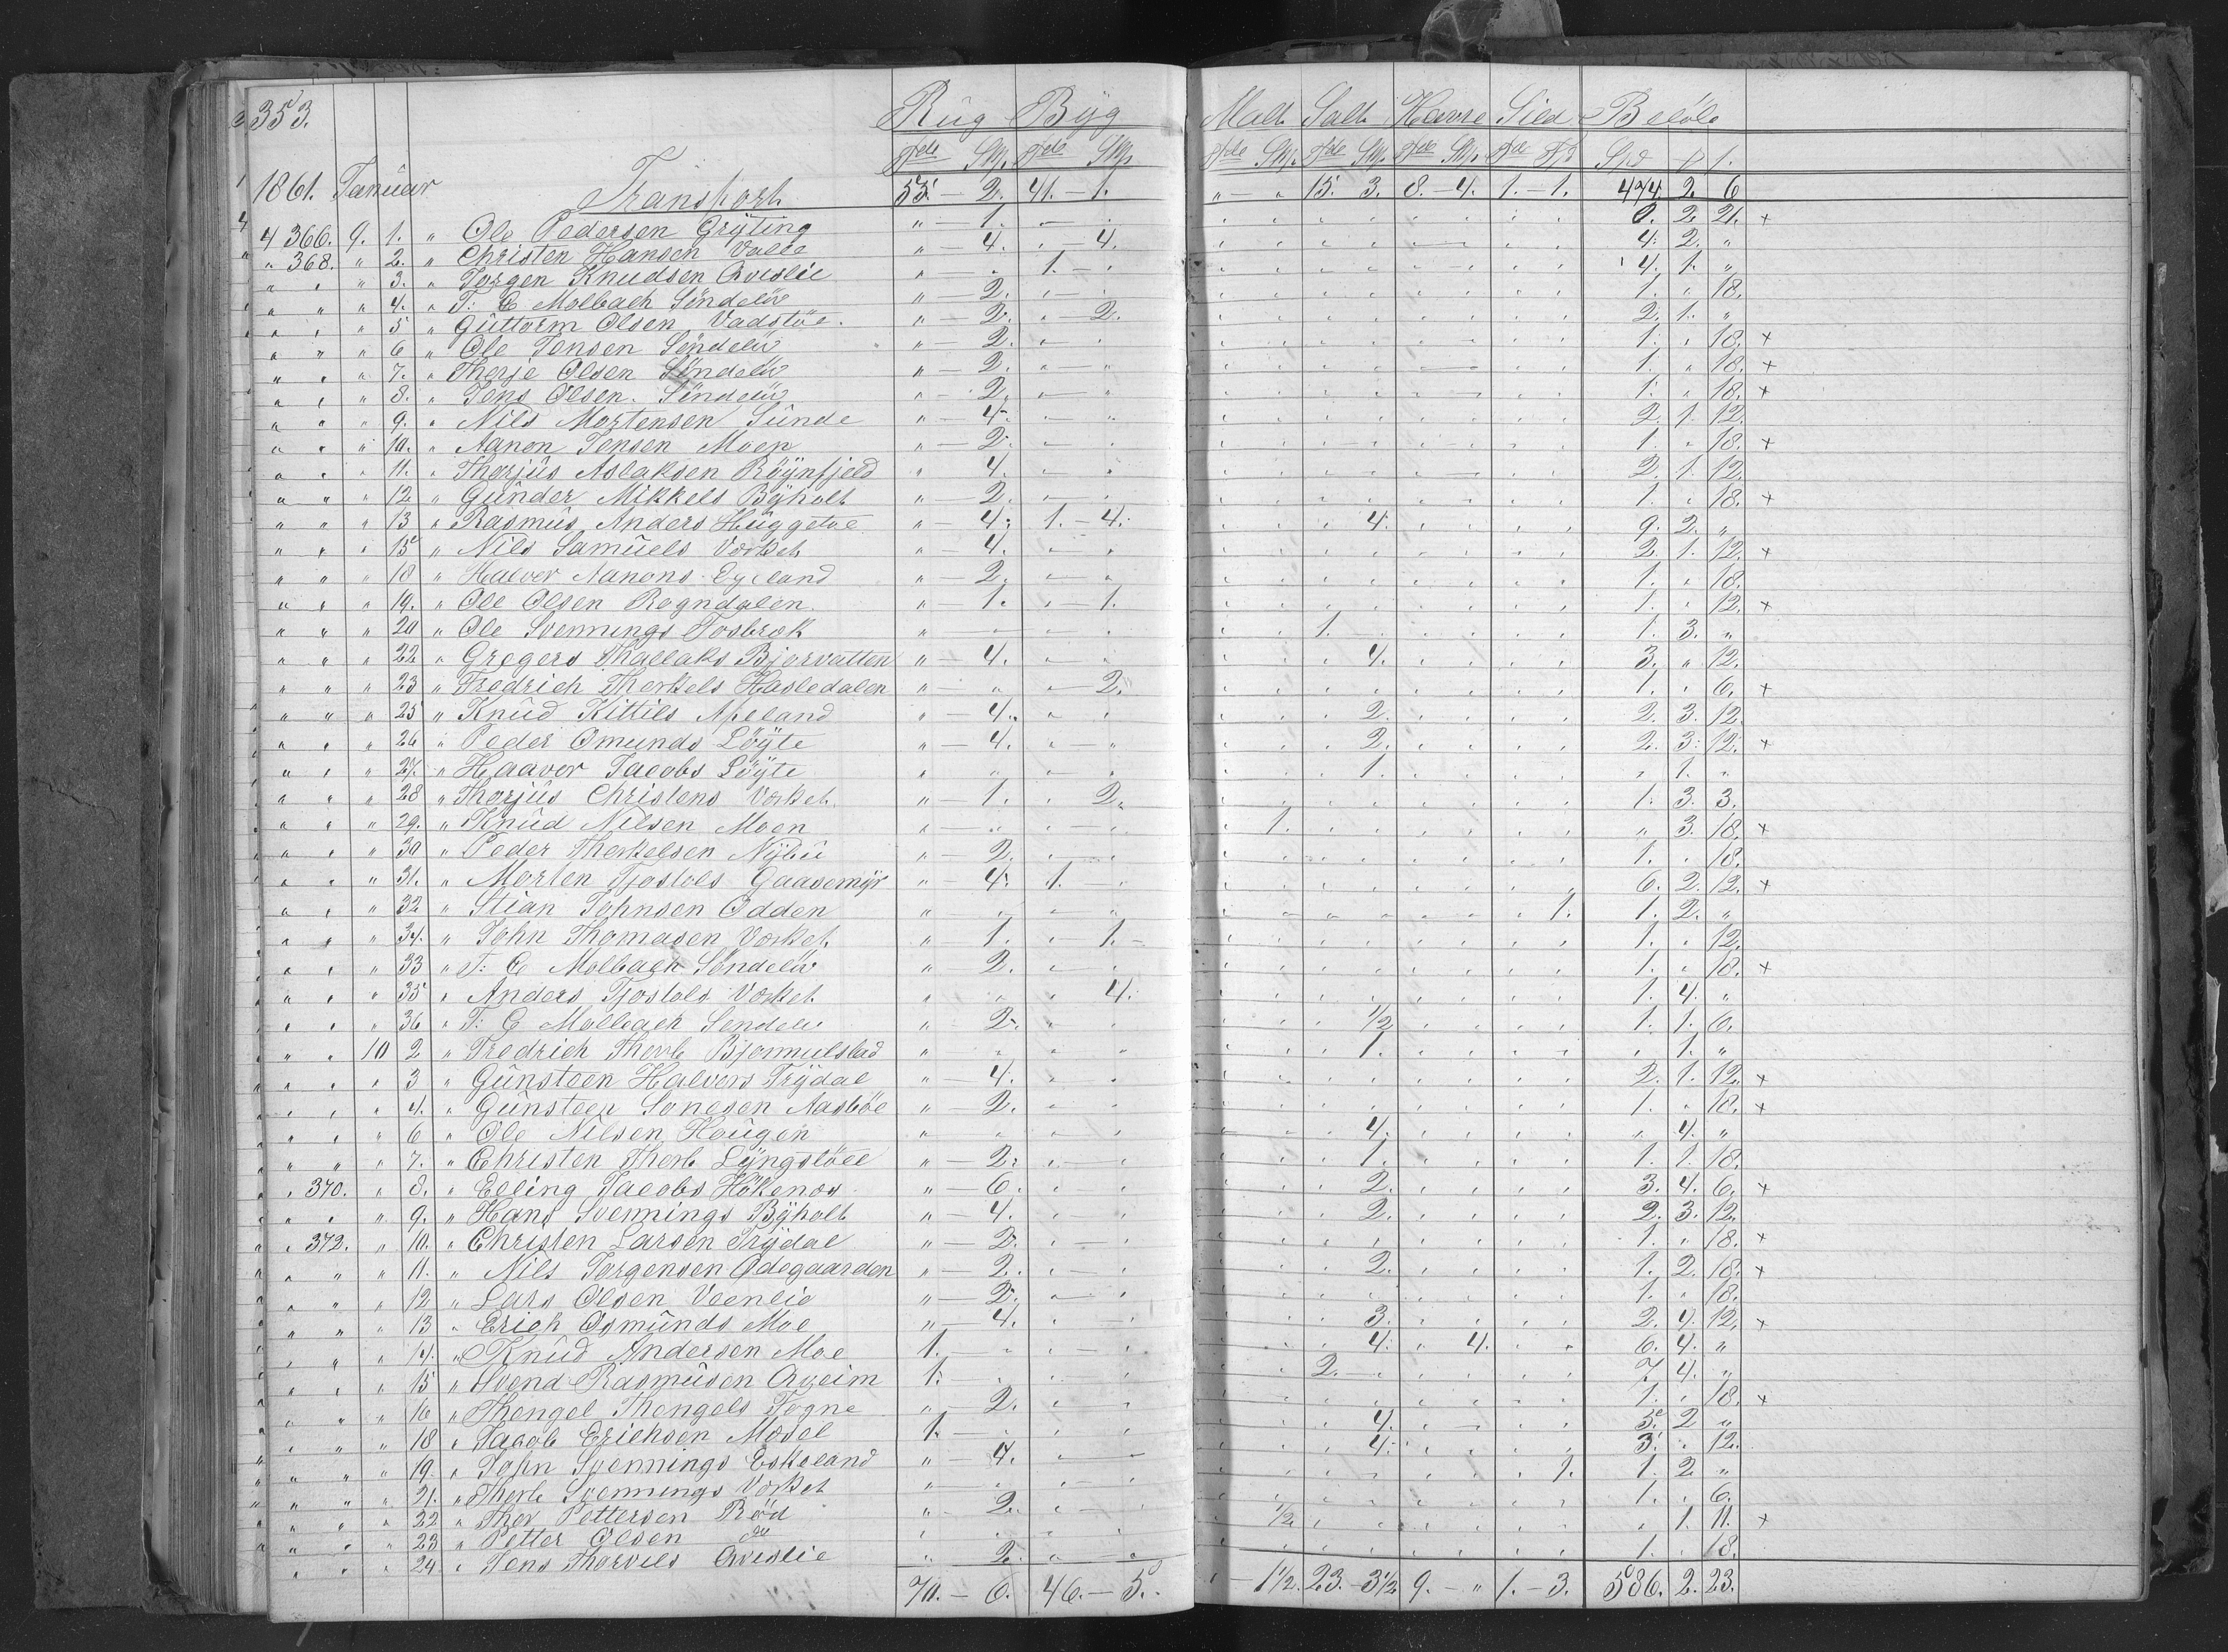 353. Rüg Büg Malt Salt Havre Sild Beløb
Tde Skp. Tde Skp. Tde Skp. Tde Skp. Tde Skp. Tde Fjd Spd ₰ ß.
1861. Januar Transport 55 - 2. 41. - 1. " - " 15. 3. 8. - 4. 1. - 1. 474. 2. 6
4 366. 9. 1. " Ole Pedersen Grÿting " - 1. 0. 2. 21. +
" 368. " 2. " Christen Hansen Valle " - 4. " - 4. 4. 2. "
" " " 3. " Jörgen Knudsen Qvislie " " 1. - " 4. 1. "
" " " 4. " T: C Molbach Söndelöv " - 2. 1. " 18.
" " " 5 " Guttorm Olsen Vadstöe. " - 2. " - 2. 2. 1. "
" " " 6 " Ole Jensen Söndelöv " - 2. 1. " 18. +
" " " 7. " Therje Olsen Söndelöv " - 2. 1. " 18. +
" " " 8. " Jens Olsen. Söndelöv " - 2. 1. " 18. +
" " " 9. " Nils Mortensen Sunde " - 4. 2. 1. 12.
" " " 10. " Aanon Jensen Moen " - 2. 1. " 18. +
" " " 11. " Therjus Aslaksen Röÿnfjeld " 4. 2. 1. 12.
" " " 12 " Gunder Mikkels Bÿholt " - 2. 1. " 18. +
" " " 13 " Rasmus Anders Huggetoe " - 4. 1. - 4. 4. 9. 2. "
" " " 15 " Nils Samuels Værket " - 4. 2. 1. 12. +
" " " 18 " Halvor Aanons Egeland " - 2. 1. " 18.
" " " 19. " Ole Olsen Rogndalen " - 1. " - 1. 1. " 12. +
" " " 20 " Ole Svennings Fosbræk " 1. 1. 3. "
" " " 22 " Gregers Thallaks Bjorvatten " - 4. 4. 3. " 12.
" " " 23 " Fredrich Therkels Hasledalen " - " " - 2. 1. " 6. +
" " " 25 " Knud Kittils Apeland " - 4. 2. 2. 3. 12.
" " " 26 " Peder Omunds Löÿte " - 4. 2. 2. 3. 12. +
" " " 27. " Haavor Jacobs Löÿte " 1. " 1. "
" " " 28 " Therjus Christens Værket " - 1. " 2. 1. 3. 3.
" " " 29. " Knud Nilsen Moen " 1. " 3. 18. +
" " " 30 " Peder Therkelsen Nÿbu " - 2. 1. " 18.
" " " 31. " Morten Tjostols Gaasemÿr " - 4. 1. - " 6. 2. 12. +
" " " 32 " Stian Johnsen Odden " 1. 1. 2. "
" " " 34. " John Thomasen Værket " - 1. " - 1. 1. " 12.
" " " 33 " T: C Molbach Söndelöv " 2. 1. " 18. +
" " " 35 " Anders Tjostols Værket " 4. 1. 4. "
" " " 36 " T: C Molbach Söndelöv " - 2. 1/2 1. 1. 6.
" " 10 2 " Fredrich Therb Bjormulstad " 1. " 1. "
" " " 3 " Gunsteen Halvors Trÿdal " - 4. 2. 1. 12. +
" " " 4. " Gunsteen Sonesen Aasböe " - 2. 1. " 18. +
" " " 6 " Ole Nilsen Haugen " 4. " 4. "
" " " 7. " Christen Therb Lÿngslöee " - 2. 1. 1. 1. 18.
" 370. " 8. " Elling Jacobs Hökenæs " - 6. 2. 3. 4. 6. +
" " " 9. " Hans Svennings Bÿholt " - 4. 2. 2. 3. 12.
" 372. " 10. " Christen Larsen Trÿdal " - 2. 1. " 18. +
" " " 11. " Nils Jörgensen Ødegaarden " - 2. 2. 1. 2. 18. +
" " " 12 " Lars Olsen Veenlie " - 2. 1. " 18.
" " " 13 " Erich Osmunds Moe " - 4. 3. 2. 4. 12. +
" " " 14. " Knud Andersen Moe 1. 4. " 4. 6. 4. "
" " " 15 " Svend Rasmusen Aveim 1. 2. 7. 4. "
" " " 16 " Thengel Thengels Togne " - 2. 1. " 18. +
" " " 18 " Jacob Erichsen Mosel 1. 4. 5. 2 "
" " " 19. " John Svennings Eskeland " - 4. 4. 3. " 12.
" " " 21. " Therb Svennings Værket " 1. 1. 2 "
" " " 22 " Ther Pettersen Röd " - 2. 1. " 6.
" " " 23 " Petter Olsen do 1/2 " 1. 11. +
" " " 24. " Jens Thorvels Qvislie " 2. 1. " 18.
70. - 6. 46. - 5. " - 1 1/2. 23. - 3 1/2 9. - " 1. - 3. 586. 2. 23.